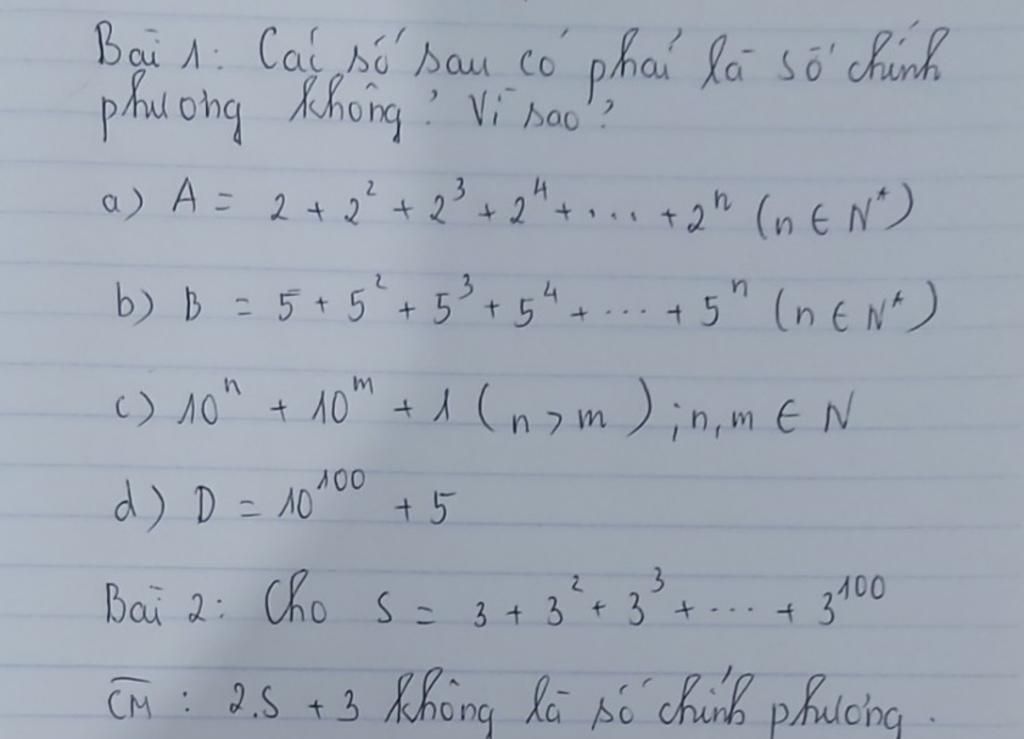 Bài 1: Các số sau có phải là số chính
phương không? Vì sao?
a) A = 2 + 2² + 2³ + 2⁴ + ... + 2ⁿ (n ∈ N*)
b) B = 5 + 5² + 5³ + 5⁴ + ... + 5ⁿ (n ∈ N*)
c) 10ⁿ + 10ᵐ + 1 (n > m); n, m ∈ N
d) D = 10¹⁰⁰ + 5
Bài 2: Cho S = 3 + 3² + 3³ + ... + 3¹⁰⁰
CM : 2.S + 3 không là số chính phương.